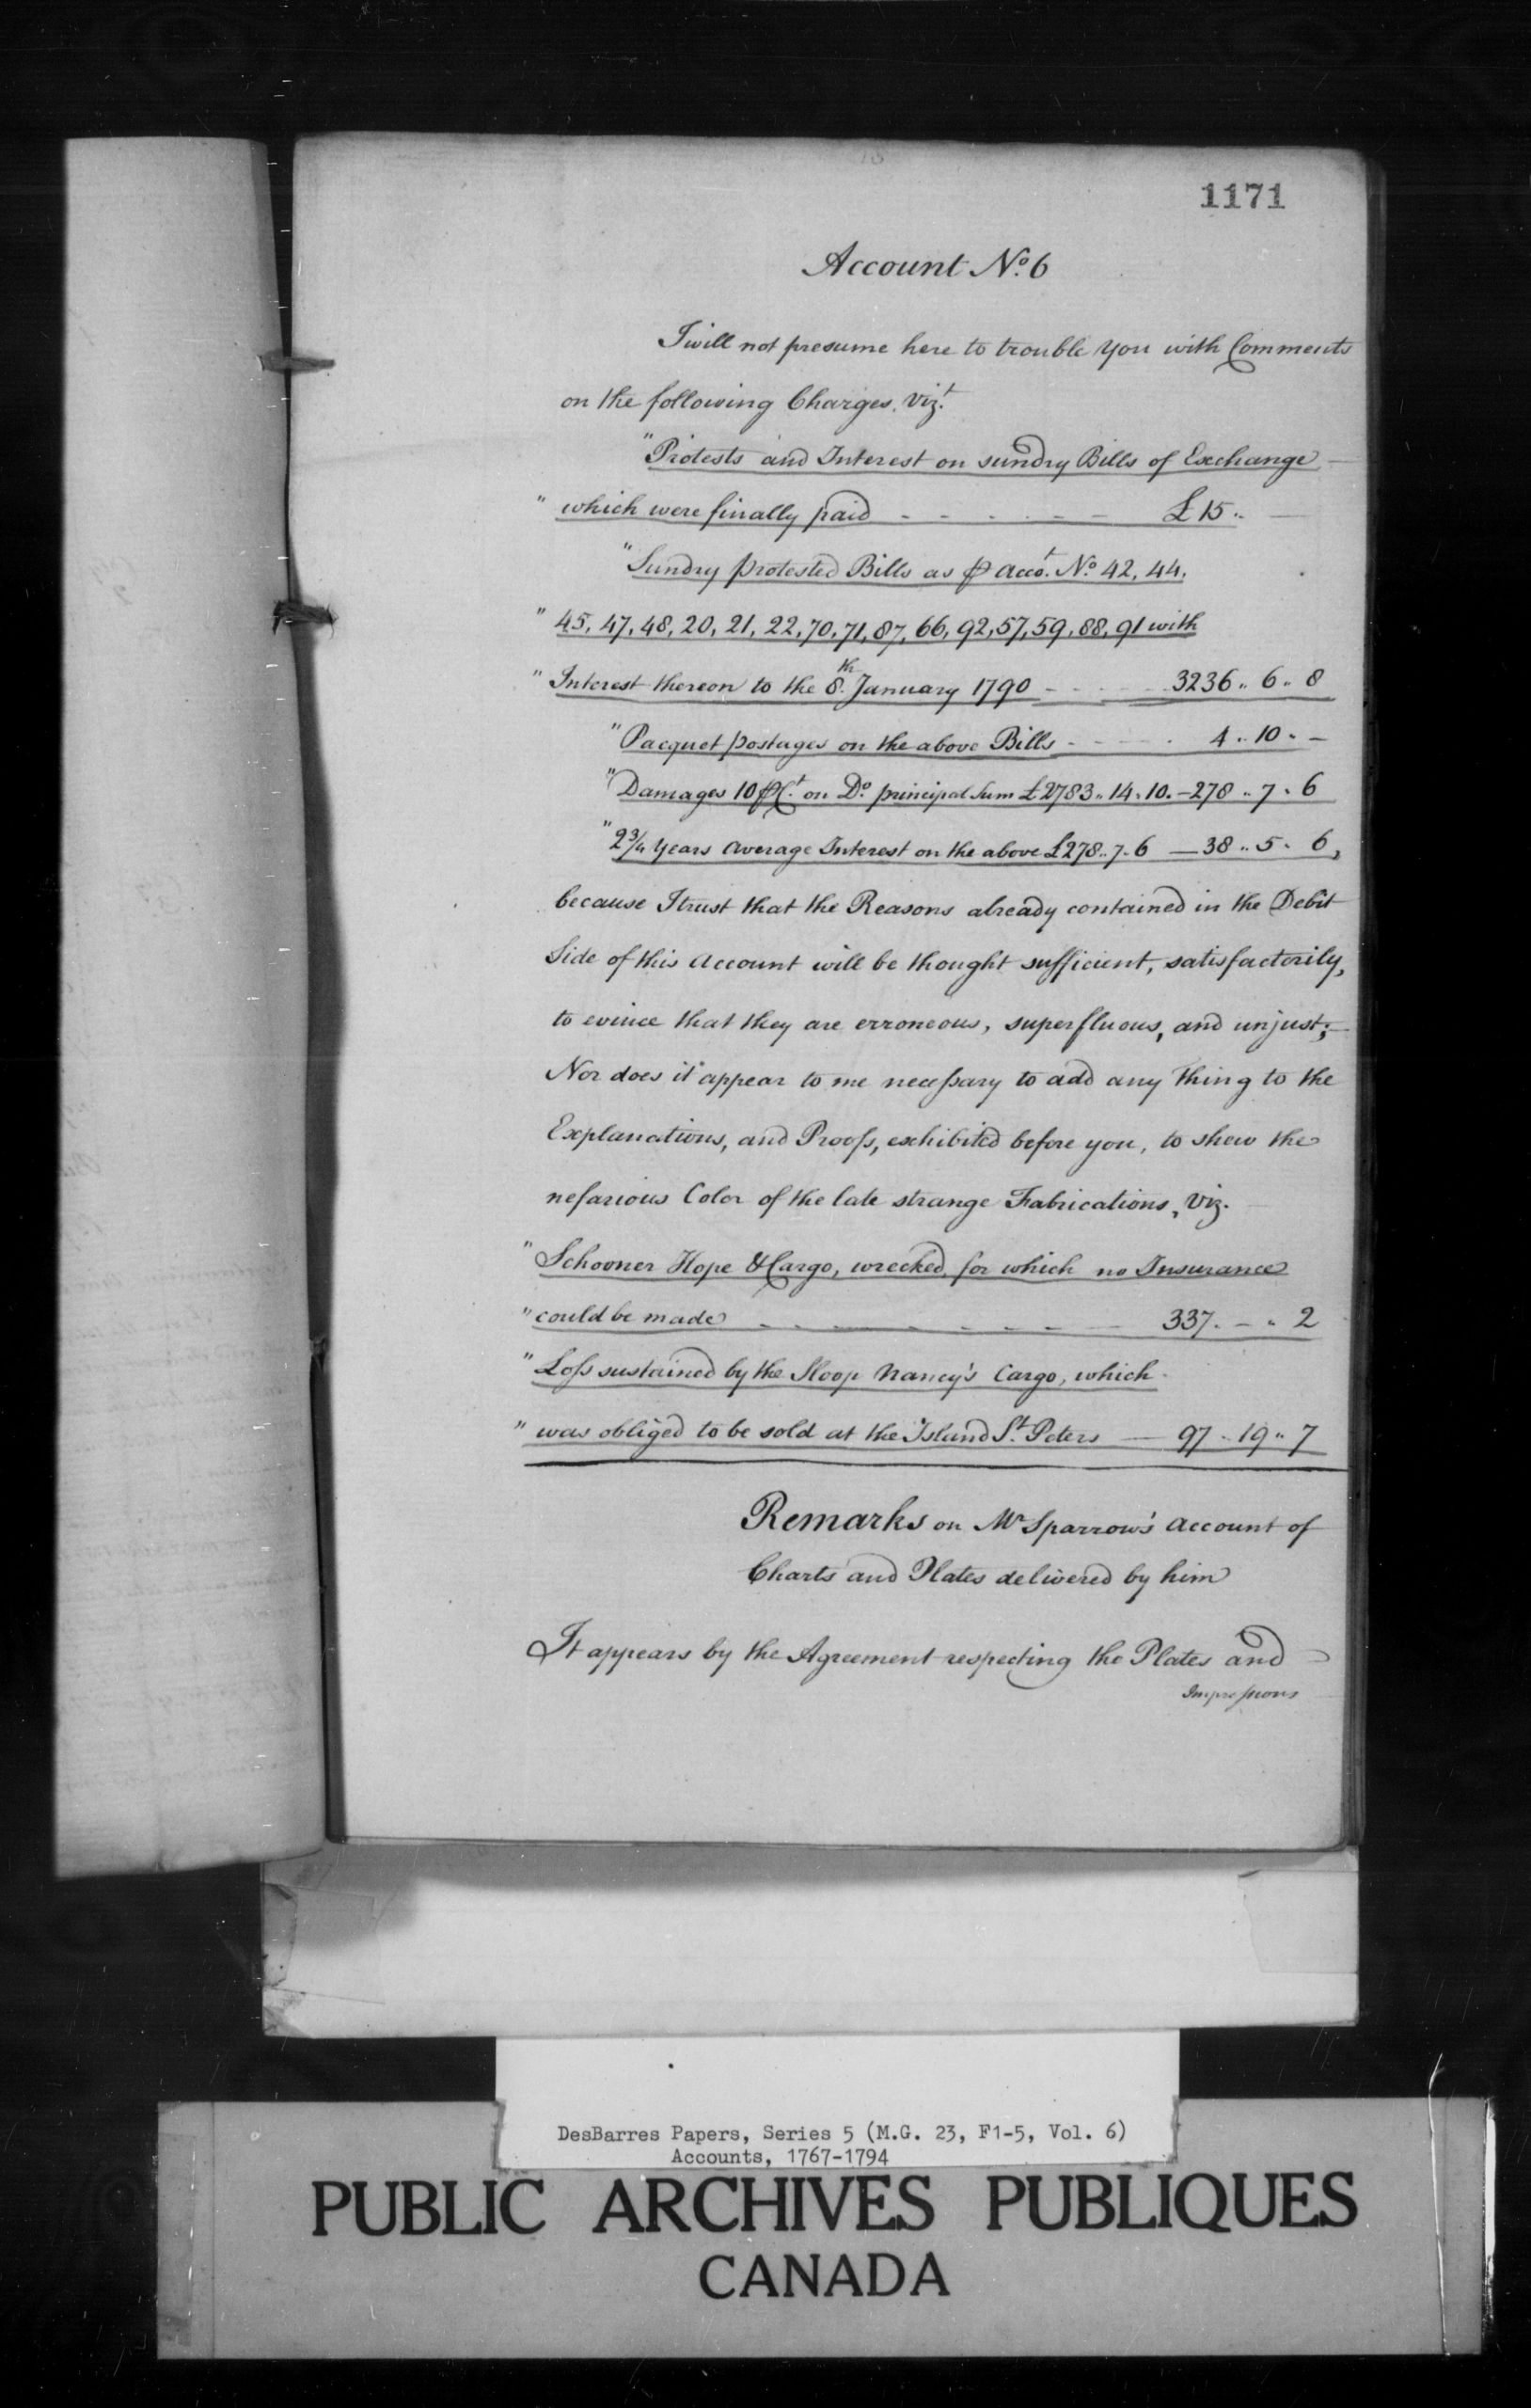 1171
Account No. 6
I will not presume here to trouble You with Comments
on the following Charges, Vizt.
"Protests and Interest on sundry Bills of Exchange
" which were finally paid - - - - - - £15..
"Sundry protested Bills as ⅌ Acco.t No. 42, 44,
" 45, 47, 48, 20, 21, 22, 70, 71, 87, 66, 92, 57, 59, 88, 91 with
" Interest thereon to the 8.th January 1790 - - - - 3236.. 6.. 8
"Pacquet postages on the above Bills - - - - 4.. 10. -
"Damages 10 ⅌ C.t on Do. principal Sum £2783.. 14. 10. - 278.. 7. 6
"2¾ Years Average Interest on the above £278.. 7. 6 — 38.. 5. 6,
because I trust that the Reasons already contained in the Debit
Side of this Account will be thought sufficient, satisfactorily,
to evince that they are erroneous, superfluous, and unjust;
Nor does it appear to me necessary to add any Thing to the
Explanations, and Proofs, exhibited before you, to show the
nefarious Color of the late strange Fabrications, Viz.
" Schooner Hope & Cargo, wrecked, for which no Insurance
" could be made - - - - - - - 337. - " 2
" Loss sustained by the Sloop Nancy's Cargo, which
" was obliged to be sold at the Island St. Peters — 97.. 19.. 7
Remarks on Mr Sparrow's Account of
Charts and Plates delivered by him
It appears by the Agreement respecting the Plates and
Impressions
DesBarres Papers, Series 5 (M.G. 23, F1-5, Vol. 6)
Accounts, 1767-1794
PUBLIC ARCHIVES PUBLIQUES
CANADA